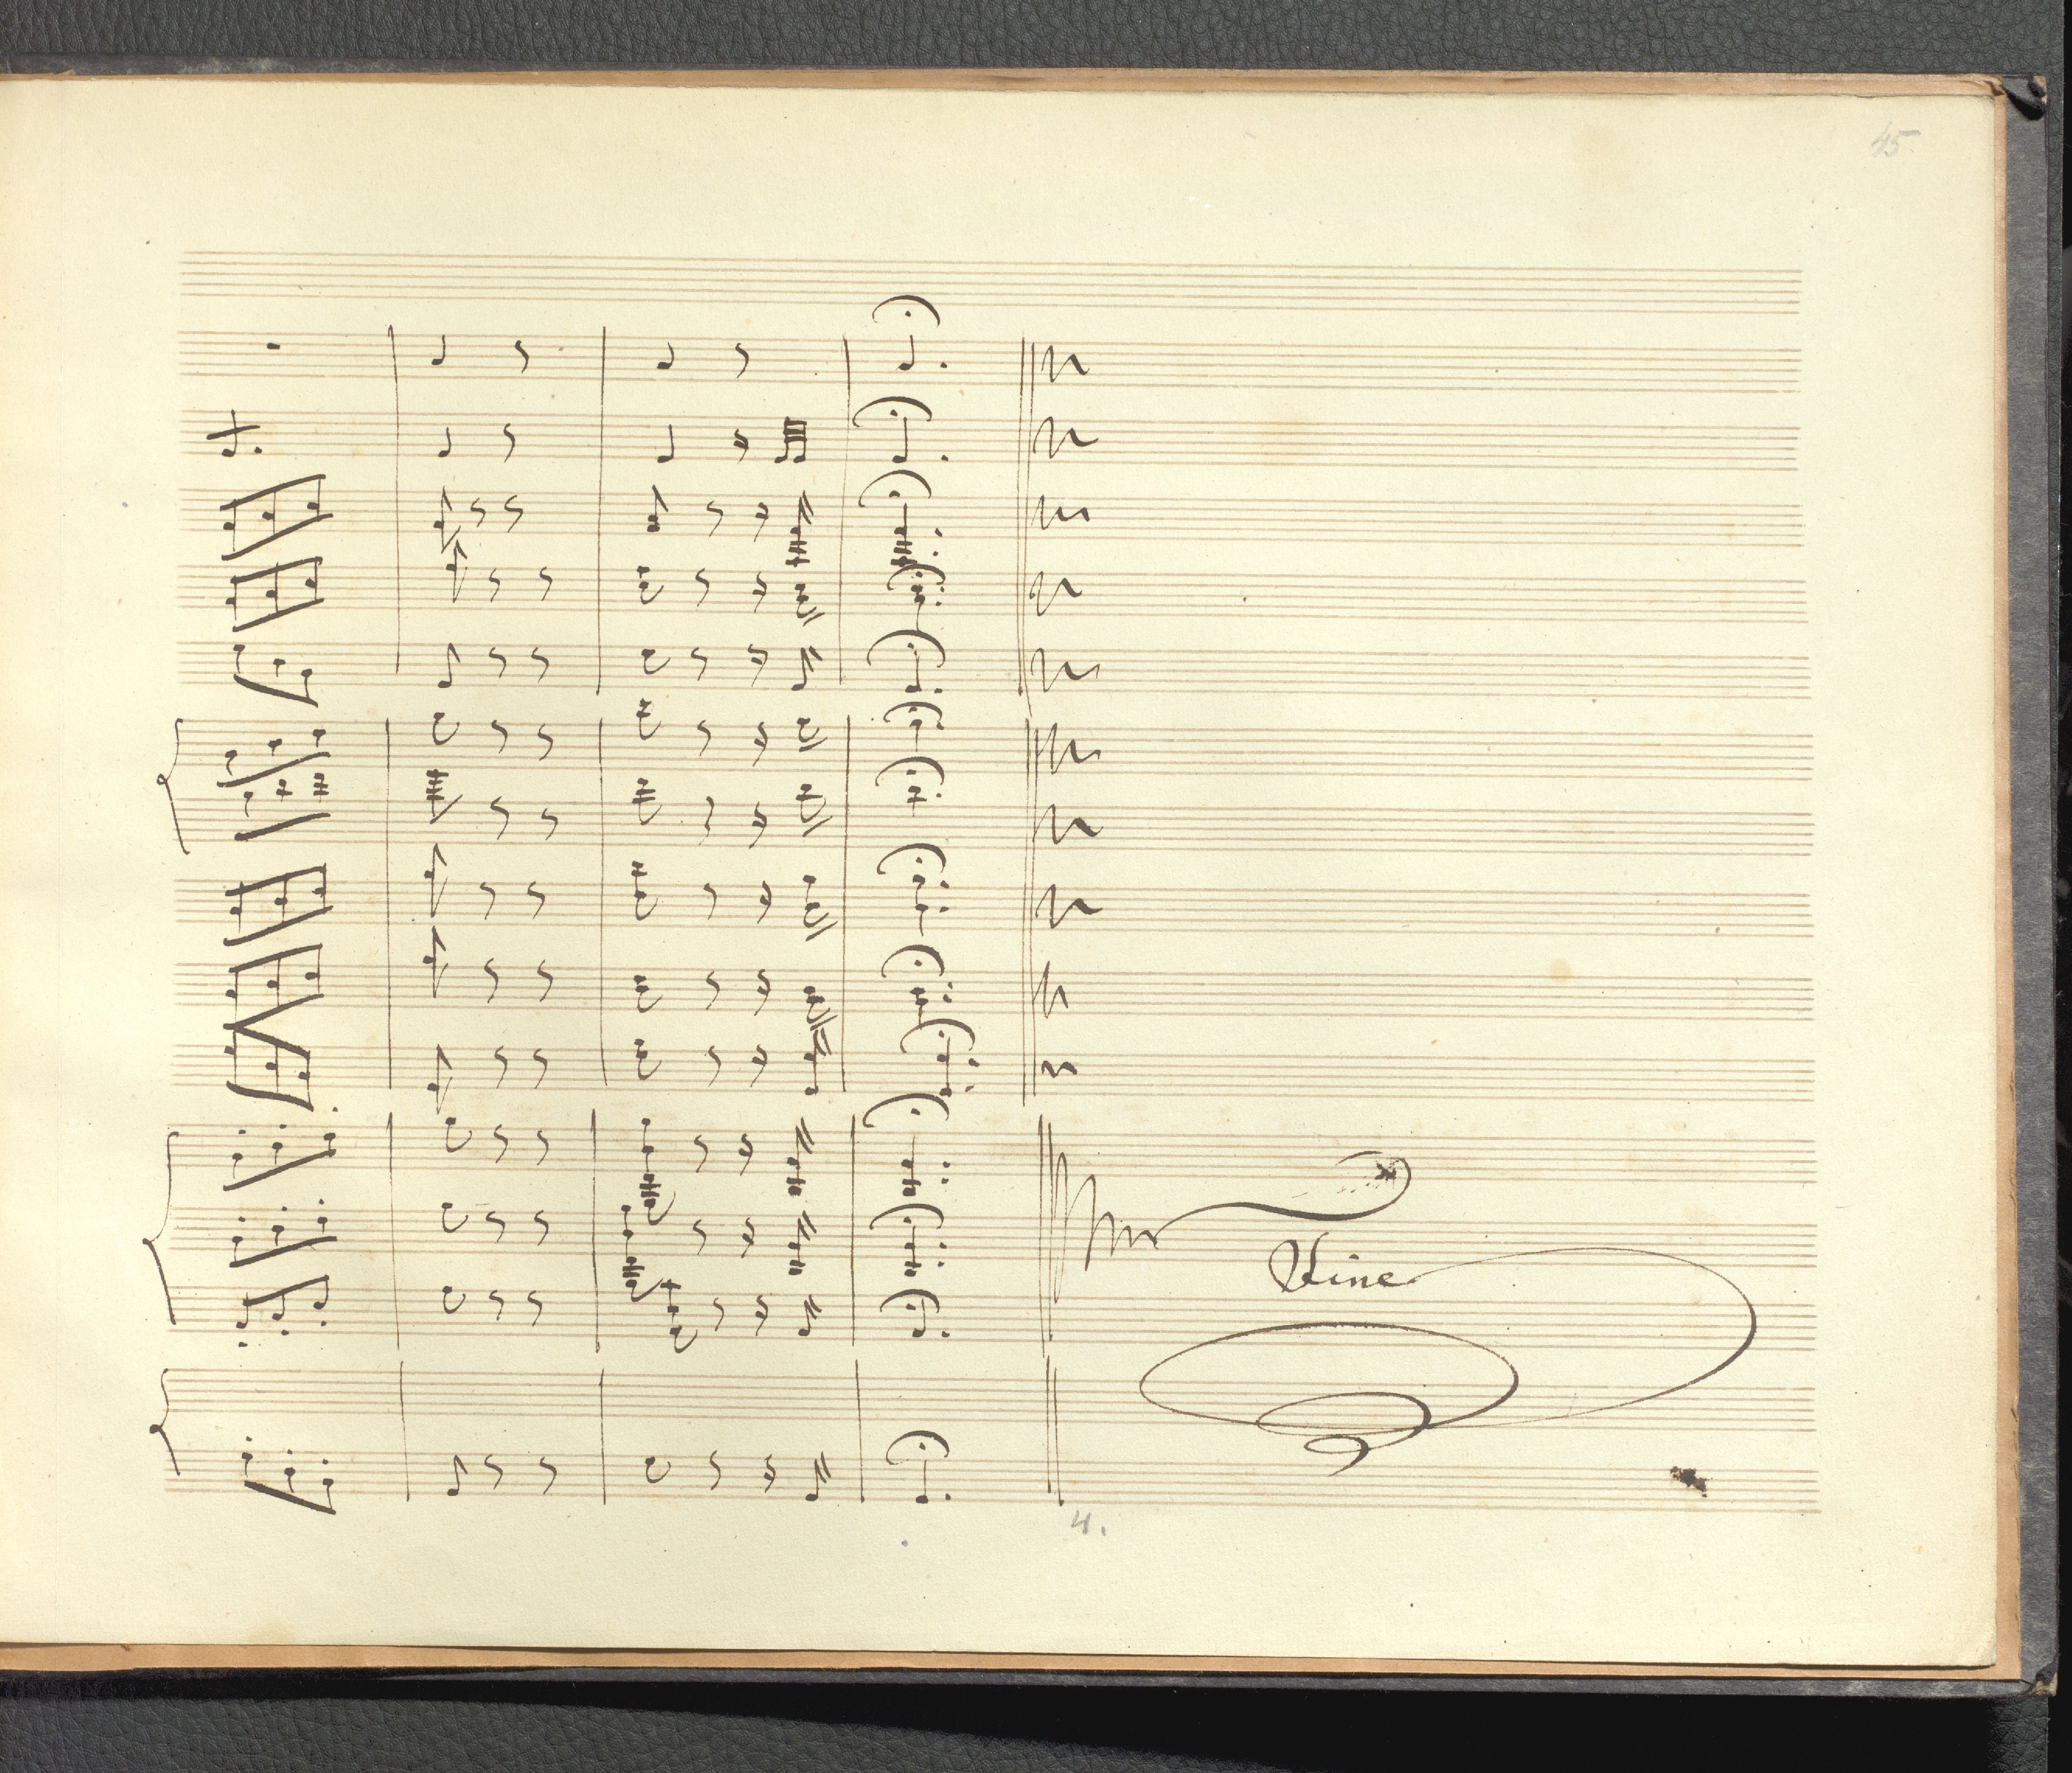 45.
Vine
4.